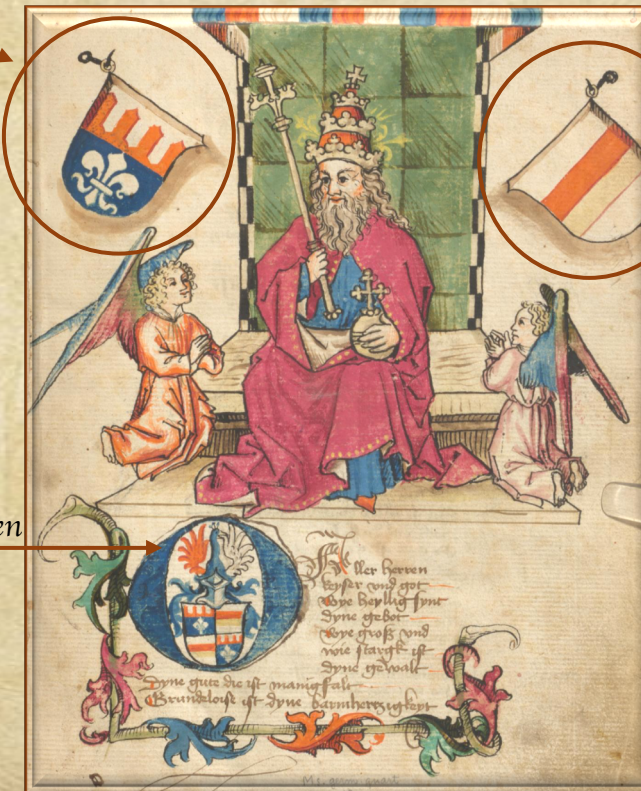 en
Aller herren
keyser vnd got
wye heyllig synt
dyne gebot
wye groß vnd
wie starck ist
dyne gewalt
Dyne gute die ist manigfalt
Grundeloise ist dyne barmhertzigkeyt
Ms. germ. quart